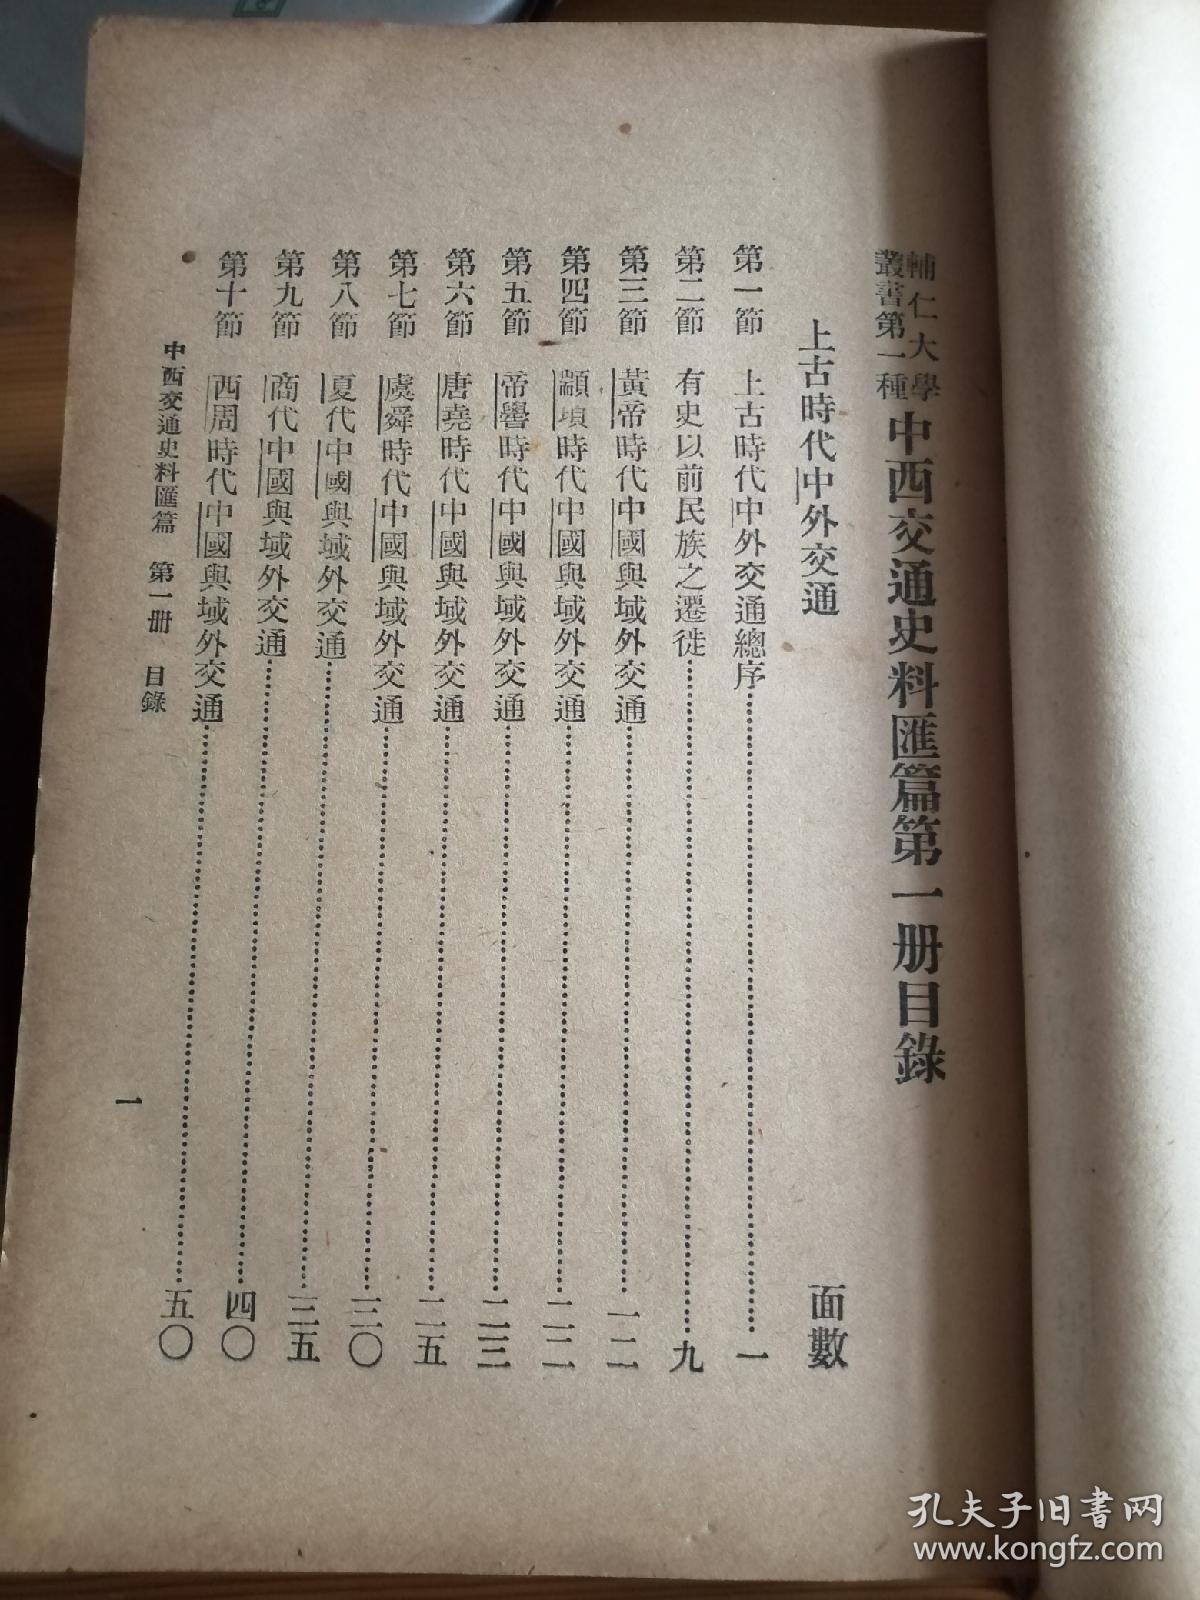 輔仁大學
叢書第一種
中西交通史料匯篇第一册目錄
上古時代中外交通
面數
第一節 上古時代中外交通總序 一
第二節 有史以前民族之遷徙 九
第三節 黃帝時代中國與域外交通 一二
第四節 顓頊時代中國與域外交通 二二
第五節 帝嚳時代中國與域外交通 二三
第六節 唐堯時代中國與域外交通 二五
第七節 虞舜時代中國與域外交通 三〇
第八節 夏代中國與域外交通 三五
第九節 商代中國與域外交通 四〇
第十節 西周時代中國與域外交通 五〇
中西交通史料匯篇 第一册 目錄
一
孔夫子旧书网
www.kongfz.com